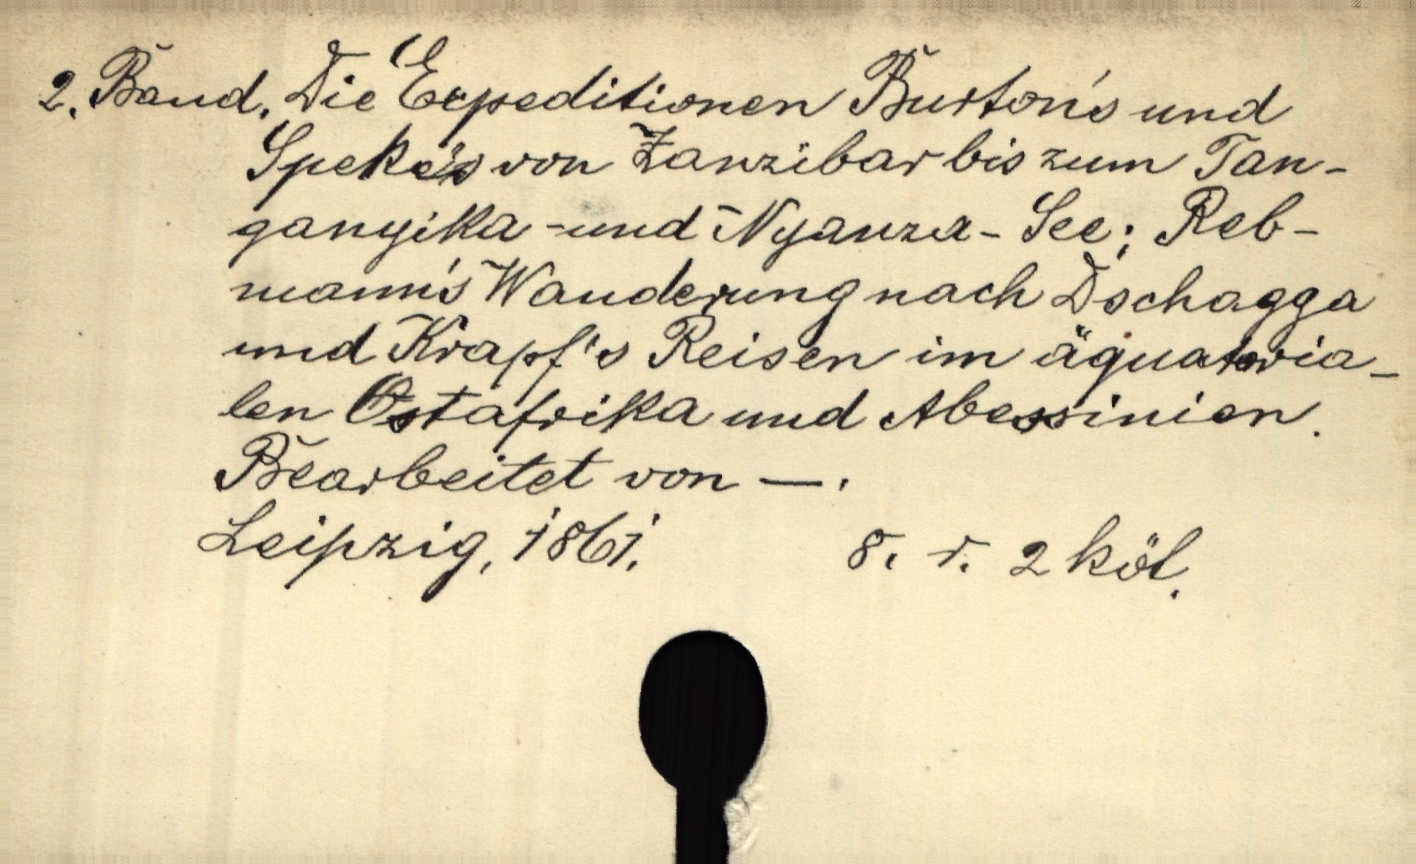 2. Band. Die Expeditionen Burton's und
Speke's von Zanzibar bis zum Tan-
ganyika - und Nyanza - See; Reb-
mann's Wanderung nach Dschagga
und Krapf's Reisen im äquatoria-
len Ostafrika und Abessinien.
Bearbeitet von —.
Leipzig, 1861. 8. r. 2 köt.